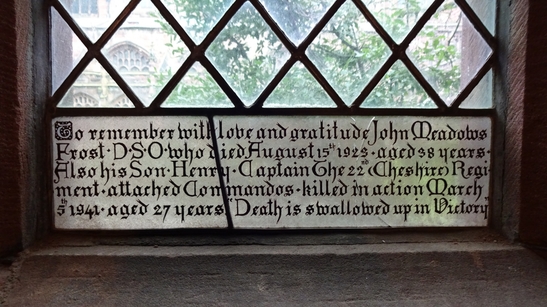 To remember with love and gratitude John Meadows
Frost · D·S·O· who died August 15th 1923 · aged 38 years ·
Also his Son · Henry · Captain The 22nd (Cheshire) Regi
ment · attached Commandos · killed in action March
5th 1941 · aged 27 years "Death is swallowed up in Victory"